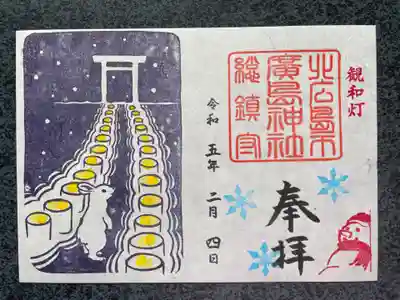 観和灯
北広島市
廣島神社
総鎮守
奉拝
令和五年二月四日